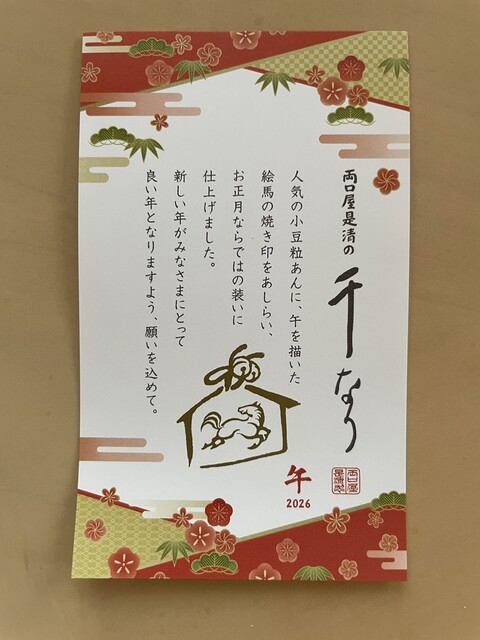 両口屋是清の
千なり
人気の小豆粒あんに、午を描いた
絵馬の焼き印をあしらい、
お正月ならではの装いに
仕上げました。
新しい年がみなさまにとって
良い年となりますよう、願いを込めて。
午
2026
両口屋
是清製